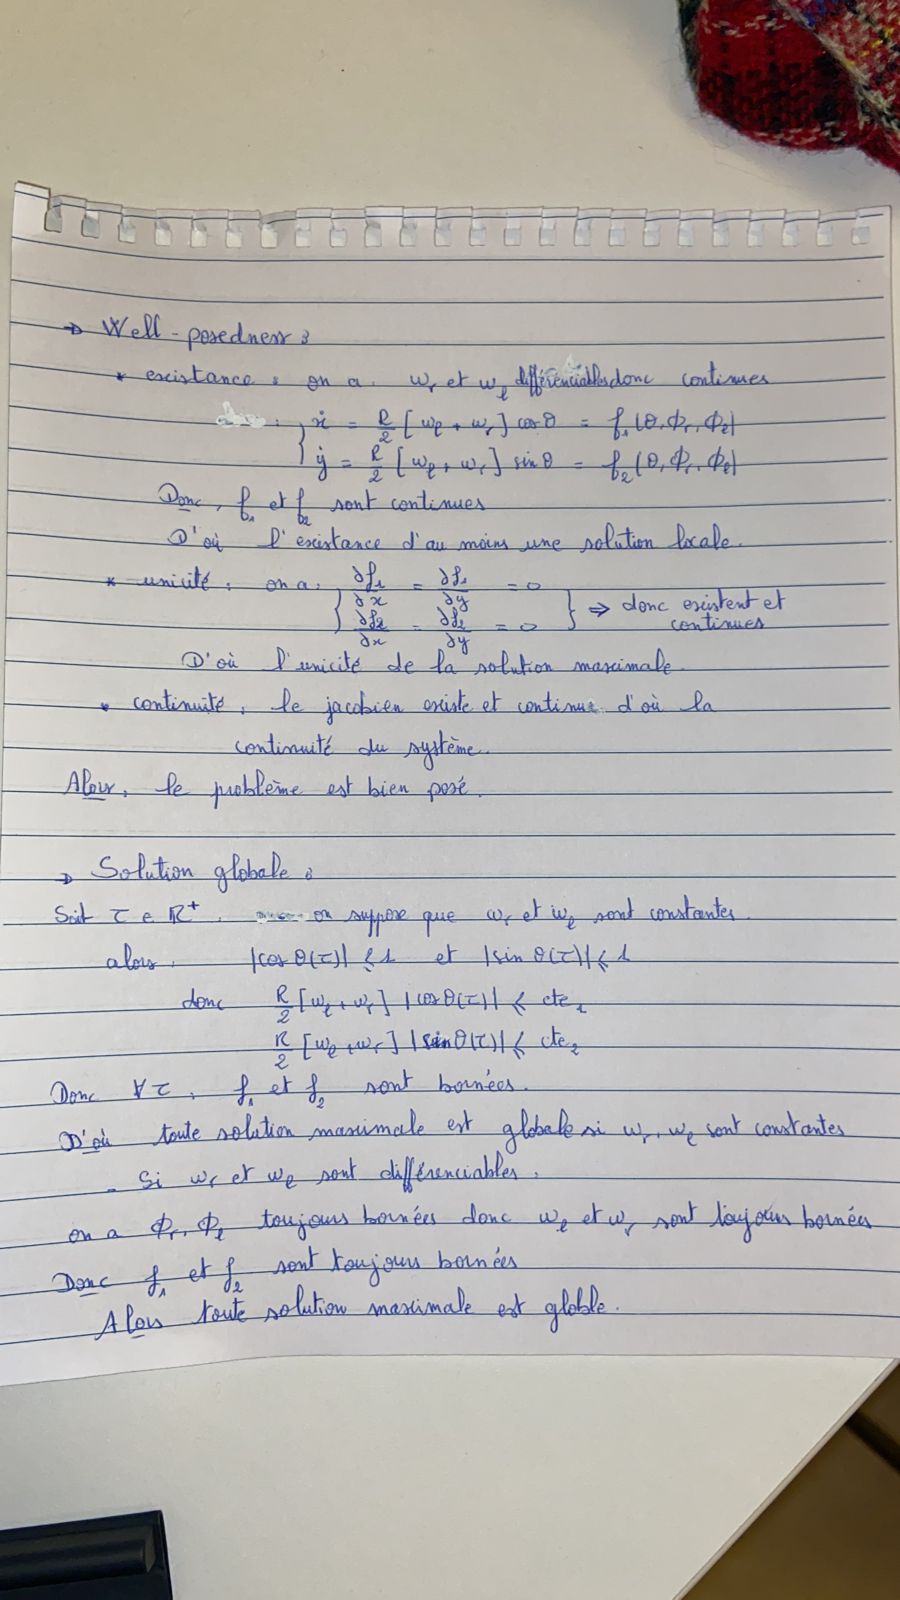 → Well-posedness :
* existance : on a : ωr et ωl différenciables donc continues
{ ẋ = R/2 [ωl + ωr] cos θ = f1(θ, Φr, Φl)
ẏ = R/2 [ωl + ωr] sin θ = f2(θ, Φr, Φl)
Donc, f1 et f2 sont continues
D'où l'existance d'au moins une solution locale.
* unicité : on a : { ∂f1/∂x = ∂f1/∂y = 0
∂f2/∂x = ∂f2/∂y = 0 } ⇒ donc existent et continues
D'où l'unicité de la solution maximale.
* continuité : le jacobien existe et continue d'où la
continuité du système.
Alors, le problème est bien posé.
→ Solution globale :
Soit τ ∈ R+. on suppose que ωr et ωl sont constantes.
alors : |cos θ(τ)| ≤ 1 et |sin θ(τ)| ≤ 1
donc R/2 [ωl + ωr] |cos θ(τ)| ≤ cte1
R/2 [ωl + ωr] |sin θ(τ)| ≤ cte2
Donc ∀τ, f1 et f2 sont bornées.
D'où toute solution maximale est globale si ωr, ωl sont constantes
- Si ωr et ωl sont différenciables,
on a Φr, Φl toujours bornées donc ωl et ωr sont toujours bornées
Donc f1 et f2 sont toujours bornées
Alors toute solution maximale est globle.